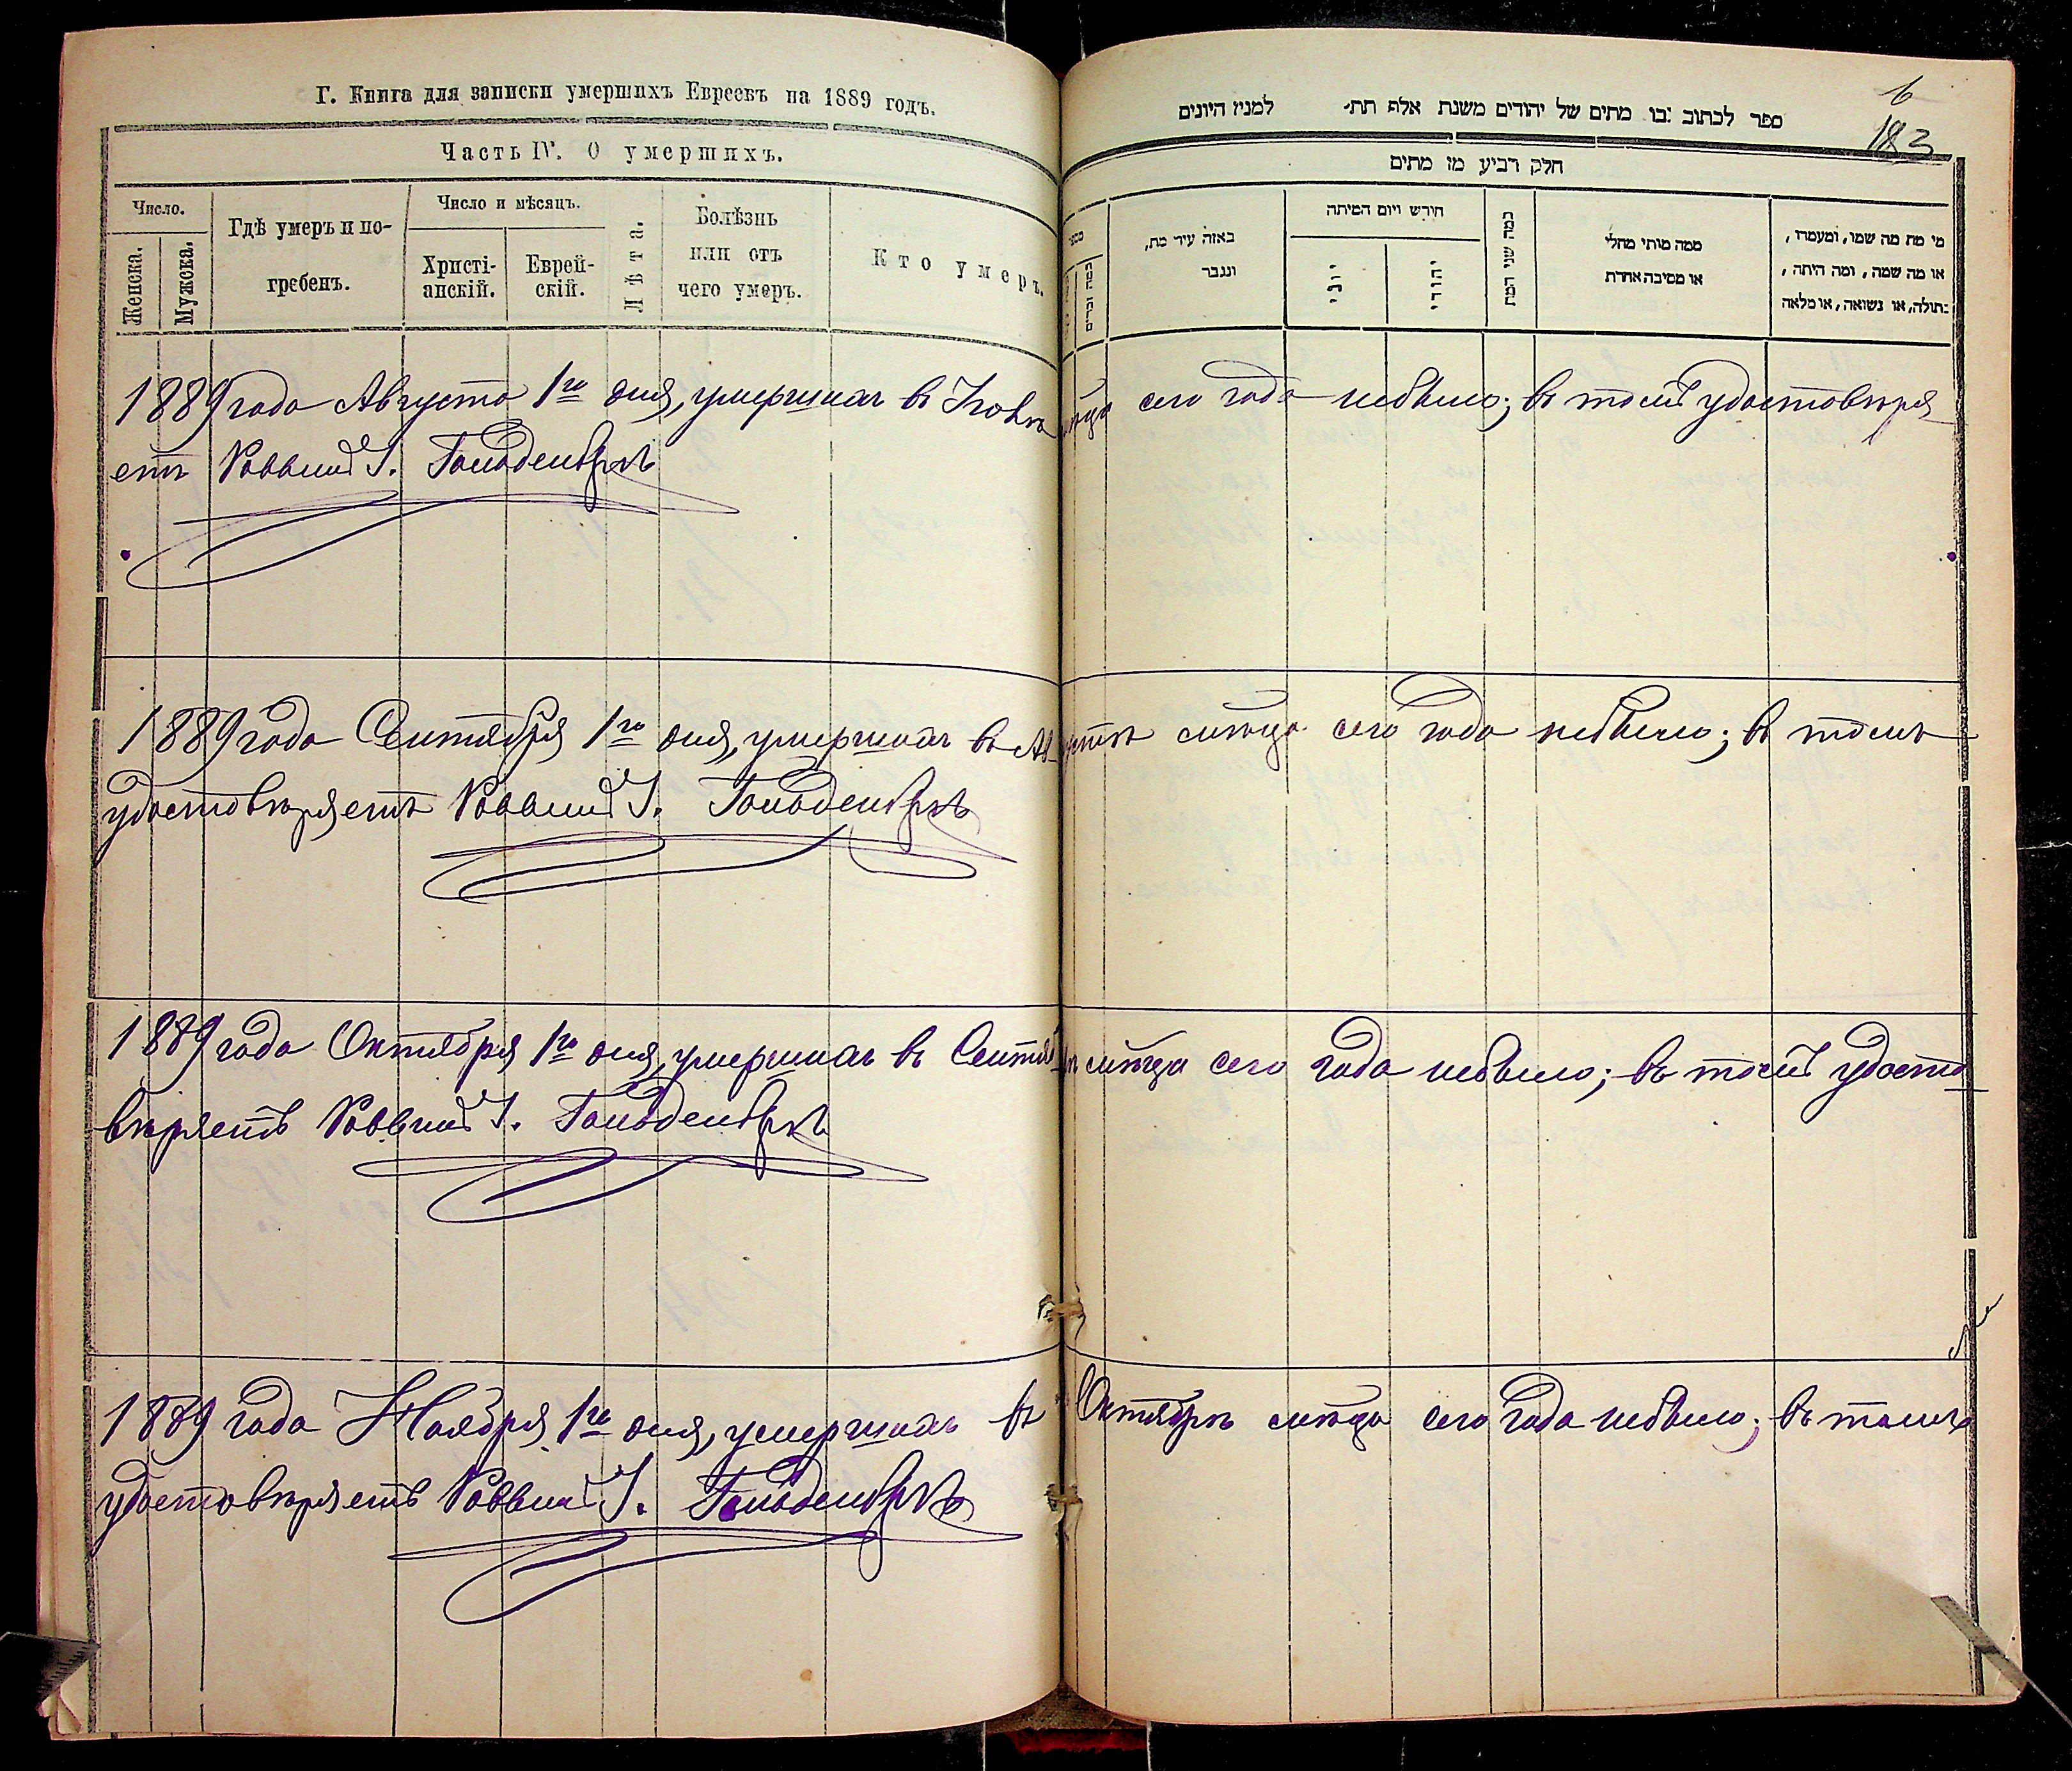 Г. Книга для записки умершихъ Евреевъ на 1889 годъ.
Часть IV. О умершихъ.
Число.
Женска.
Мужска.
Гдѣ умеръ и по-
гребенъ.
Число и мѣсяцъ.
Христі-
анскій.
Еврей-
скій.
Лѣта.
Болѣзнь
или отъ
чего умеръ.
Кто умеръ.
6
183
ספר לכתוב בו מתים של יהודים משנת אלף תת׳ למנין היונים
חלק רביע מן מתים
באזה עיר מת,
ונגבר
חודש ויום המיתה
יוני
יהודי
כמה שני המת
ממה מותי מחלי
או מסיבה אחרת
מי מת מה שמו, ומעמדו,
או מה שמה, ומה היתה,
בתולה, או נשואה, או מלאה
1889 года Августа 1го дня, умершихъ въ Іюлѣ мѣсяца сего года небыло; въ томъ удостовѣря
етъ Раввинъ І. Гольденбергъ
1889 года Сентября 1го дня, умершихъ въ Августѣ мѣсяца сего года небыло; въ томъ
удостовѣряетъ Раввинъ І. Гольденбергъ
1889 года Октября 1го дня, умершихъ въ Сентябрѣ мѣсяца сего года небыло; въ томъ удосто
вѣряетъ Раввинъ І. Гольденбергъ
1889 года Ноября 1го дня, умершихъ въ Октябрѣ мѣсяца сего года небыло; въ томъ
удостовѣряетъ Раввинъ І. Гольденбергъ